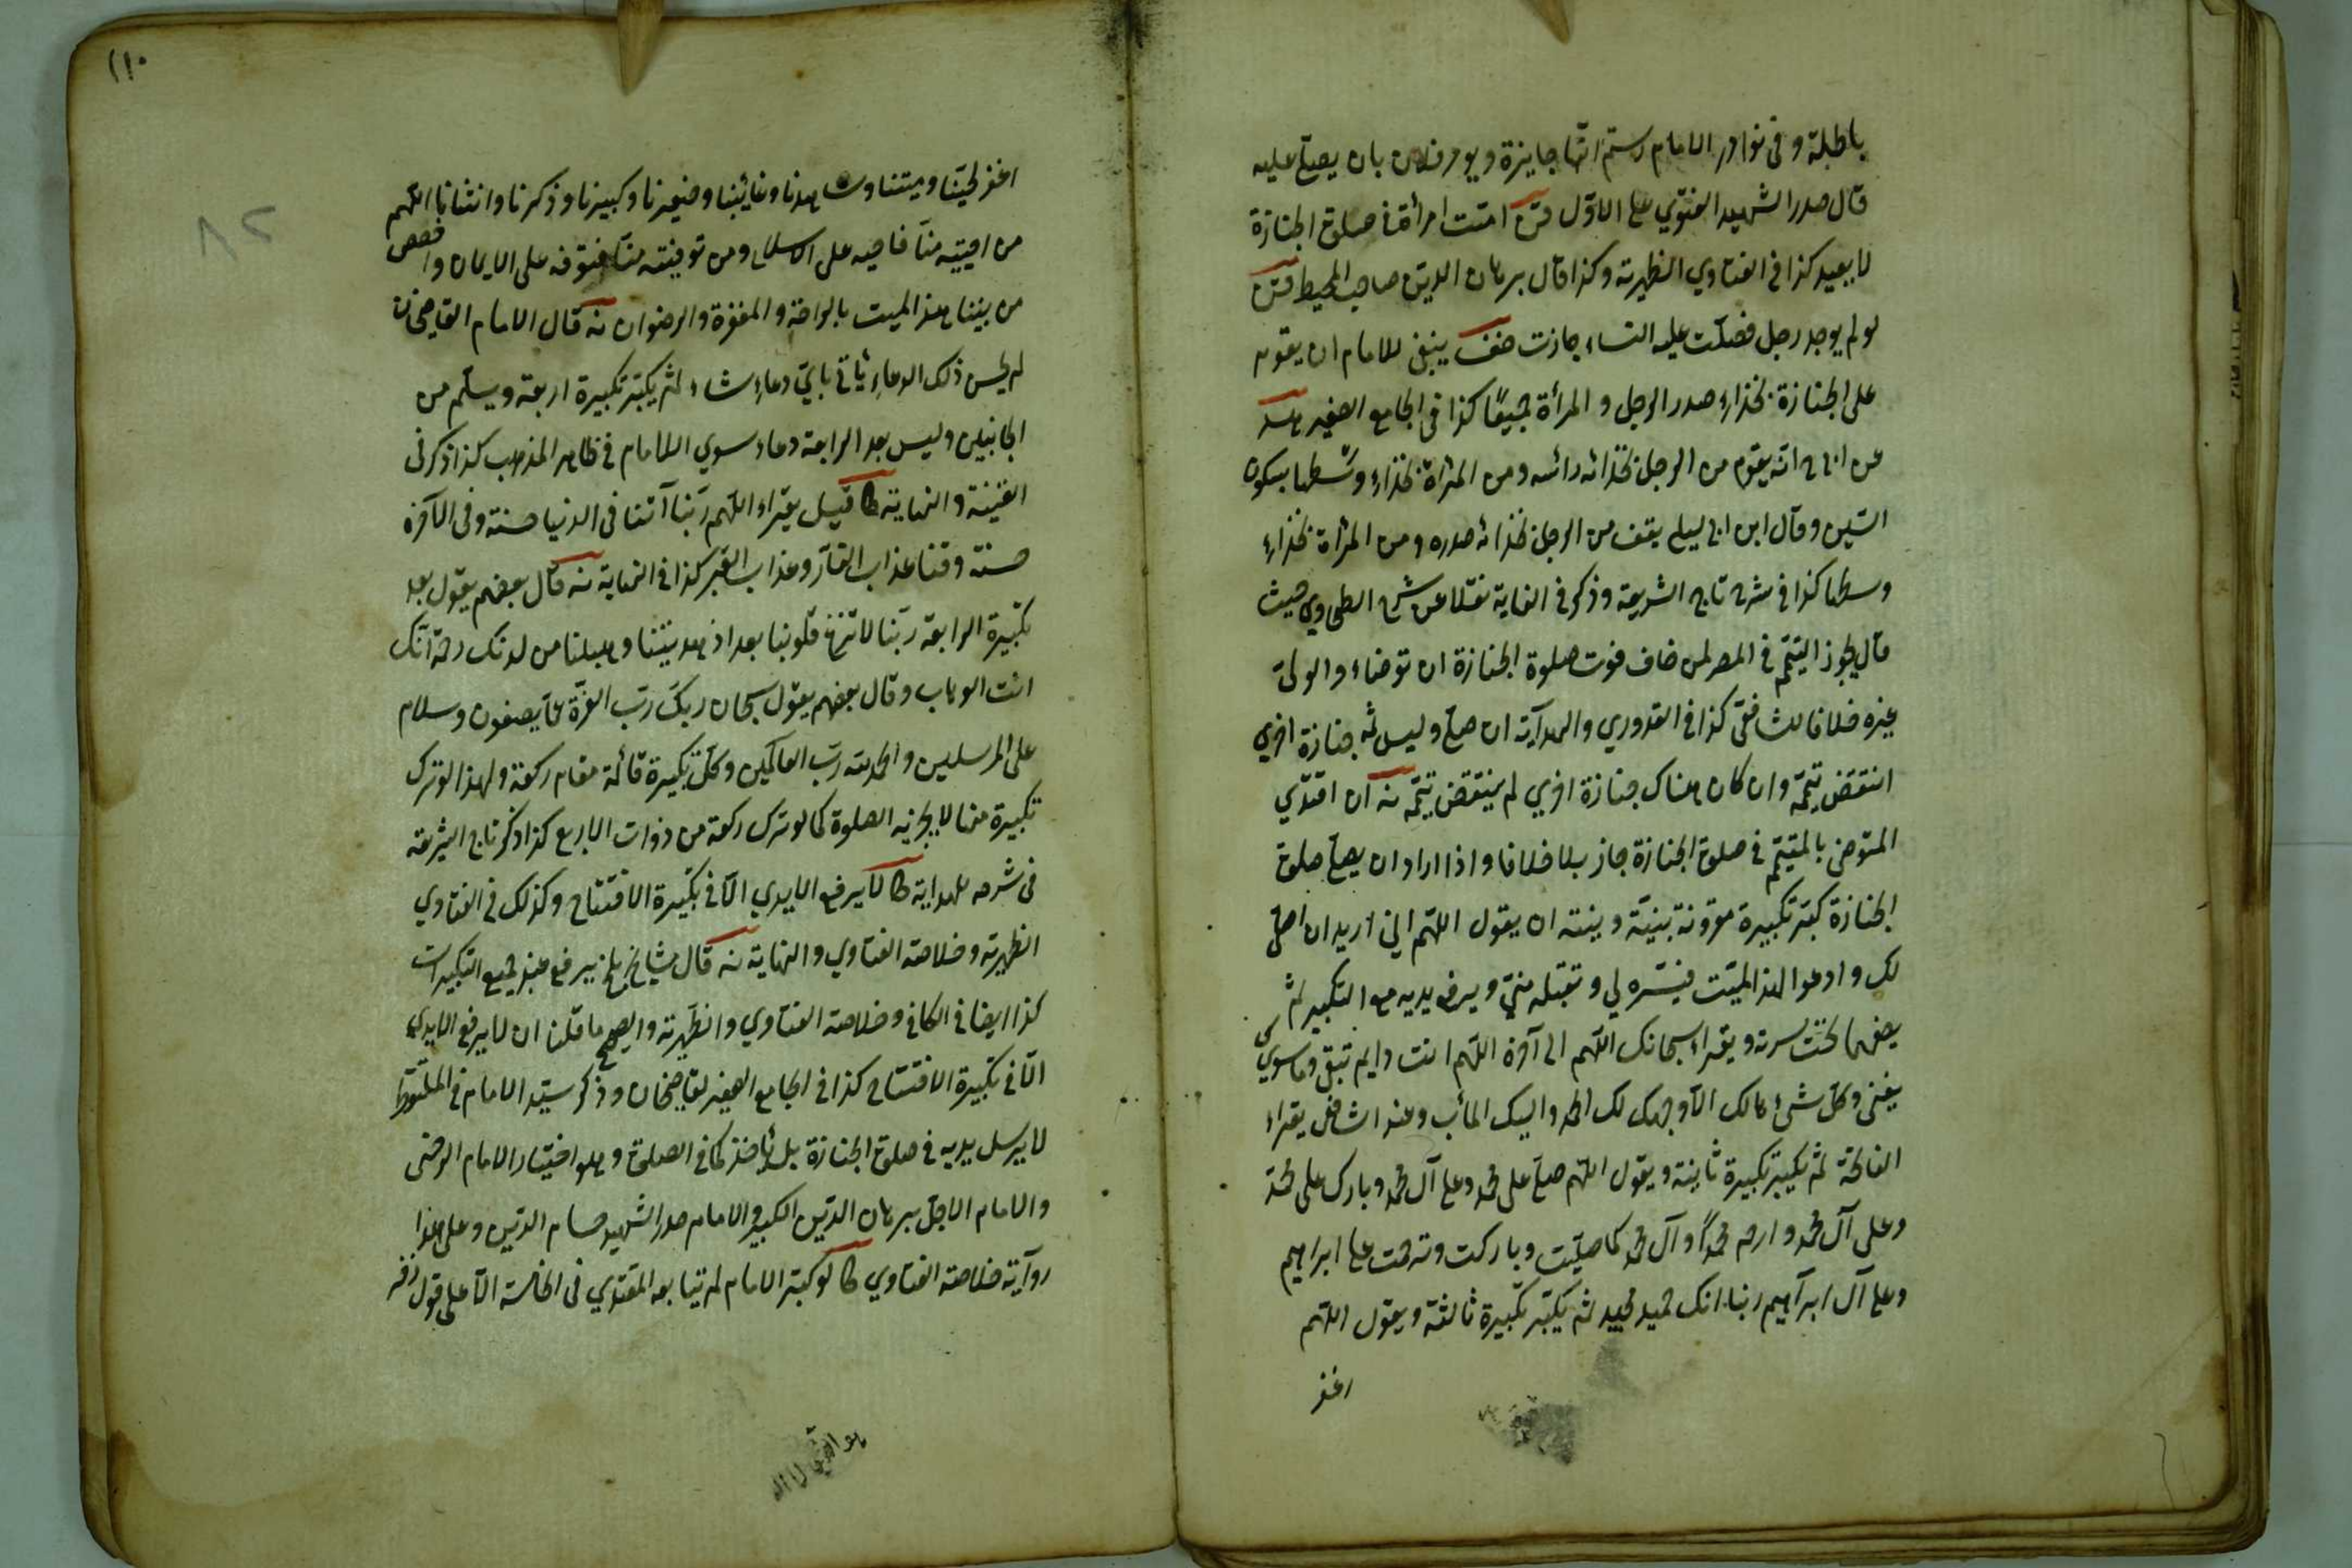 باطلة و فى نوادر الامام رستم انها جايزة ويومر فلان بان يصلي عليه
قال صدر الشهيد الفتوي على الاول امت امرأة فى صلوة الجنازة
لا يعيد كذا فى الفتاوي الظهيرية وكذا قال برهان الدين صاحب المحيط
لو لم يوجد رجل فصلت عليه النساء جازت ينبغى للامام ان يقوم
على الجنازة بحذاء صدر الرجل و المرأة جميعًا كذا فى الجامع الصغير
عن انه يقوم من الرجل بحذائه رأسه ومن المرأة بحذاء وسطها بسكون
السين وقال ابن ابى ليلى يقف من الرجل بحذائه صدره ومن المرأة بحذاء
وسطها كذا فى شرح تاج الشريعة وذكر فى الغاية نقلا عن شرح الطحاوي حيث
قال يجوز التيمم فى المصر لمن خاف فوت صلوة الجنازة ان توضاء والولى
غيره خلافا للشافعى كذا فى القدوري والهداية ان صلى وليس ثمه جنازة اخري
انتقض تيممه وان كان هناك جنازة اخري لم ينتقض تيممه ان اقتدي
المتوضى بالمتيمم فى صلوة الجنازة جاز بلا خلافا واذا اراد ان يصلى صلوة
الجنازة كبر تكبيرة مقرونة بنية و ينته ان يقول اللهم انى اريد ان اصلى
لك وادعوا لهذا الميت فيسره لي و تقبله منى ويرفع يديه مع التكبير ثم
يضعهما تحت سرته ويقراء سبحانك اللهم الى آخره اللهم انت دايم تبقى وما سوي
يفنى وكل شئ هالك الا وجهك لك الحمد واليك المأب وعند الشافعى يقراء
الفاتحة ثم يكبر تكبيرة ثانية ويقول اللهم صل على محمد وعلى آل محمد وبارك على محمد
وعلى آل محمد وارحم محمدًا وآل محمد كما صليت وباركت وترحمت على ابراهيم
وعلى آل ابرآهيم ربنا انك حميد مجيد ثم يكبر تكبيرة ثالثة ويقول اللهم
اغفر
١١٠
٨٢
اغفر لحينا وميتنا وشاهدنا وغائبنا وصغيرنا وكبيرنا وذكرنا وانثانا اللهم
من احييته منا فاحيه على الاسلام ومن توفيته منا فتوفه على الايمان واخصص
من بيننا هذا الميت بالراحة والمغفرة والرضوان قال الامام القاضيخان
لم يحسن ذلك الدعاء يأتى بأي دعاء شاء ثم يكبر تكبيرة اربعة ويسلم من
الجانبين وليس بعد الرابعة دعاء سوي السلام فى ظاهر المذهب كذا ذكر فى
القنية والنهاية قيل يقراء اللهم ربنا آتنا فى الدنيا حسنة وفى الآخرة
حسنة وقنا عذاب النار وعذاب القبر كذا فى النهاية قال بعضهم يقول بعد
تكبيرة الرابعة ربنا لا تزغ قلوبنا بعد اذ هديتنا وهب لنا من لدنك رحمة انك
انت الوهاب وقال بعضهم يقول سبحان ربك رب العزة عما يصفون وسلام
على المرسلين والحمد لله رب العالمين وكل تكبيرة قائمة مقام ركعة ولهذا لو ترك
تكبيرة منها لا يجزيه الصلوة كما لو ترك ركعة من ذوات الاربع كذا ذكر تاج الشريعة
فى شرحه للهداية لا يرفع الايدي الا فى تكبيرة الافتتاح وكذلك فى الفتاوي
الظهيرية وخلاصة الفتاوي والنهاية قال مشايخ بلخ يرفع عند جميع التكبيرات
كذا ايضا فى الكافى وخلاصة الفتاوي والظهيرية والصحيح ما قلنا ان لا يرفع الايدي
الا فى تكبيرة الافتتاح كذا فى الجامع الصغير لقاضيخان وذكر سيد الامام فى الملتقط
لا يرسل يديه فى صلوة الجنازة بل يأخذ كما فى الصلوة وهو اختيار الامام
والامام الاجل برهان الدين الكبير والامام صدر الشهيد حسام الدين وعلى هذا
روآية خلاصة الفتاوي لو كبر الامام لم يتابعه المقتدي فى الخامسة الا على قول زفر